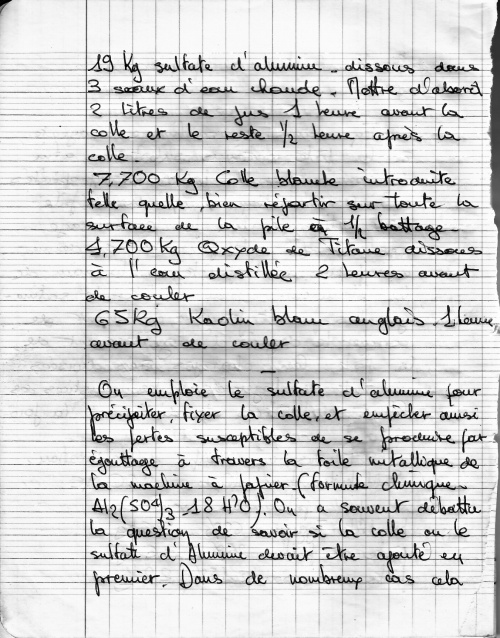 19 Kg sulfate d'alumine - dissous dans
3 seaux d'eau chaude. Mettre d'abord
2 litres de jus 1 heure avant la
colle et le reste 1/2 heure après la
colle.
7,700 Kg Colle blanche introduite
telle quelle, bien répartir sur toute la
surface de la pile à 1/2 battage -
1,700 Kg Oxyde de Titane dissous
à l'eau distillée 2 heures avant
de couler
65 Kg Kaolin blanc anglais. 1 heure
avant de couler
On emploie le sulfate d'alumine pour
précipiter, fixer la colle, et empêcher ainsi
les pertes susceptibles de se produire par
égouttage à travers la toile métallique de
la machine à papier (formule chimique -
Al2(SO4)3 - 18 H2O). On a souvent débattu
la question de savoir si la colle ou le
sulfate d'Alumine devait être ajouté en
premier. Dans de nombreux cas cela